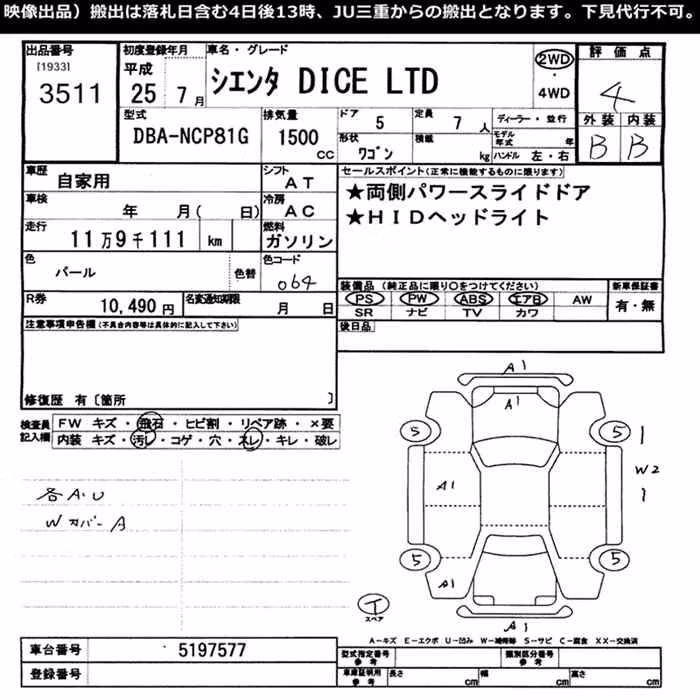 映像出品）搬出は落札日含む4日後13時、JU三重からの搬出となります。下見代行不可。
出品番号 初度登録年月 車名・グレード 評価点
[1933] 平成 シエンタ DICE LTD 2WD・4WD
3511 25年7月 4
型式 排気量 ドア 5 定員 7人 ディーラー・並行 外装 内装
DBA-NCP81G 1500cc 形状 ワゴン 積載 kg モデル年式 年 ハンドル 左・右 B B
車歴 自家用 シフト AT セールスポイント(正常に機能するものに限ります)
車検 年 月( 日) 冷房 AC ★両側パワースライドドア
走行 11万9千111 km 燃料 ガソリン ★HIDヘッドライト
色 パール 色替 色コード 064
装備品（純正品に限り○をつけてください） 新車保証書
R券 10,490円 名変通知期限 月 日 PS PW ABS エアB AW 有・無
SR ナビ TV カワ
注意事項申告欄(不具合内容等は具体的に記入して下さい) 後日品
修復歴 有〔箇所 〕
検査員記入欄 FW キズ・飛石・ヒビ割・リペア跡・×要
内装 キズ・汚レ・コゲ・穴・スレ・キレ・破レ
各A.U
WカバーA
A1
A1
5 5 1
A1 W2
1
5 5
A1
T
スペア
A1
A-キズ E-エクボ U-凹み W-補修跡 S-サビ C-腐食 XX-交換済
車台番号 5197577 型式指定番号 参考 類別区分番号 参考
登録番号 車庫証明用 参考 長さ cm 幅 cm 高さ cm